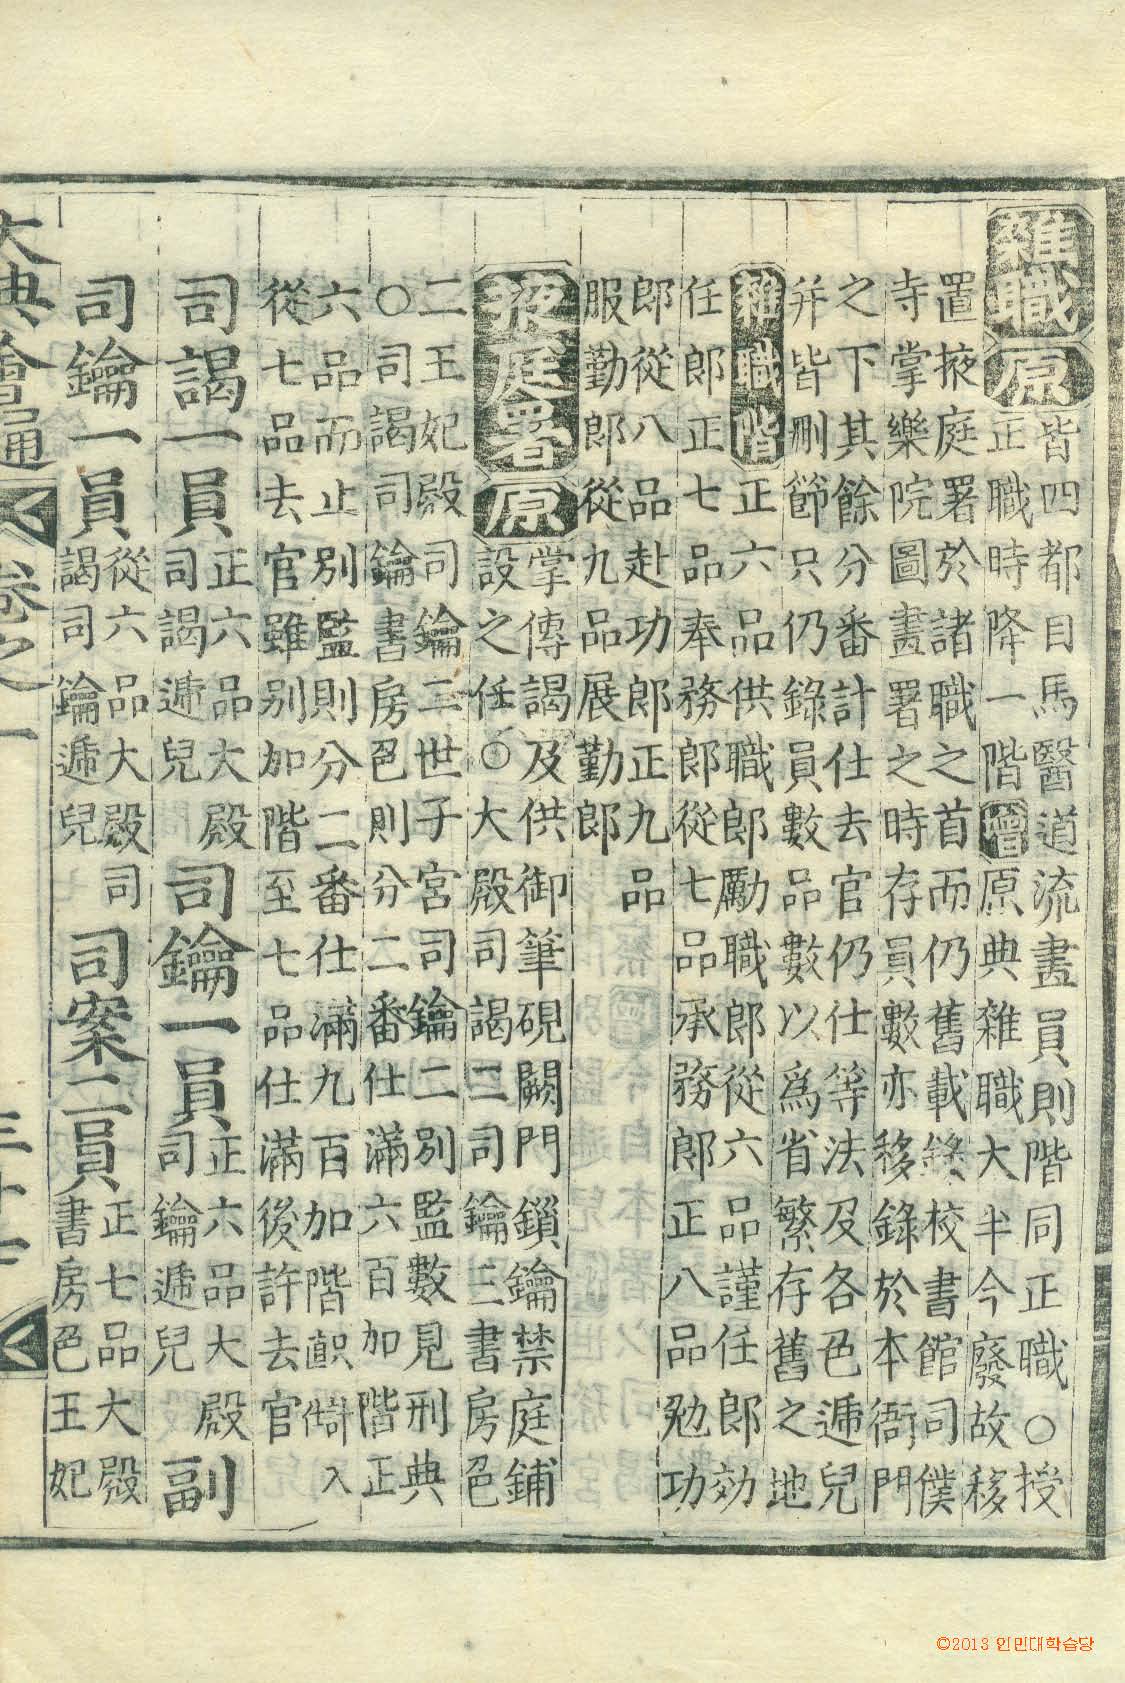 雜職 原 皆四都目馬醫道流畫員則階同正職○授
正職時降一階 增 原典雜職大半今廢故移
置掖庭署於諸職之首而仍舊載錄校書館司僕
寺掌樂院圖畫署之時存員數亦移錄於本衙門
之下其餘分番計仕去官仍仕等法及各色遞兒
幷皆刪節只仍錄員數品數以爲省繁存舊之地
雜職階 正六品供職郎勵職郎從六品謹任郎効
任郎正七品奉務郎從七品承務郎正八品勉功
郎從八品赴功郎正九品
服勤郎從九品展勤郎
掖庭署 原 掌傳謁及供御筆硯闕門鎖鑰禁庭鋪
設之任○大殿司謁二司鑰三書房色
二王妃殿司鑰三世子宮司鑰二別監數見刑典
○司謁司鑰書房色則分二番仕滿六百加階正
六品而止別監則分二番仕滿九百加階入
從七品去官雖別加階至七品仕滿後許去官
司謁一員 正六品大殿
司謁遞兒
司鑰一員 正六品大殿
司鑰遞兒
副
司鑰一員 從六品大殿司
謁司鑰遞兒
司案二員 正七品大殿
書房色王妃
大典會通 卷之一
©2013 인민대학습당